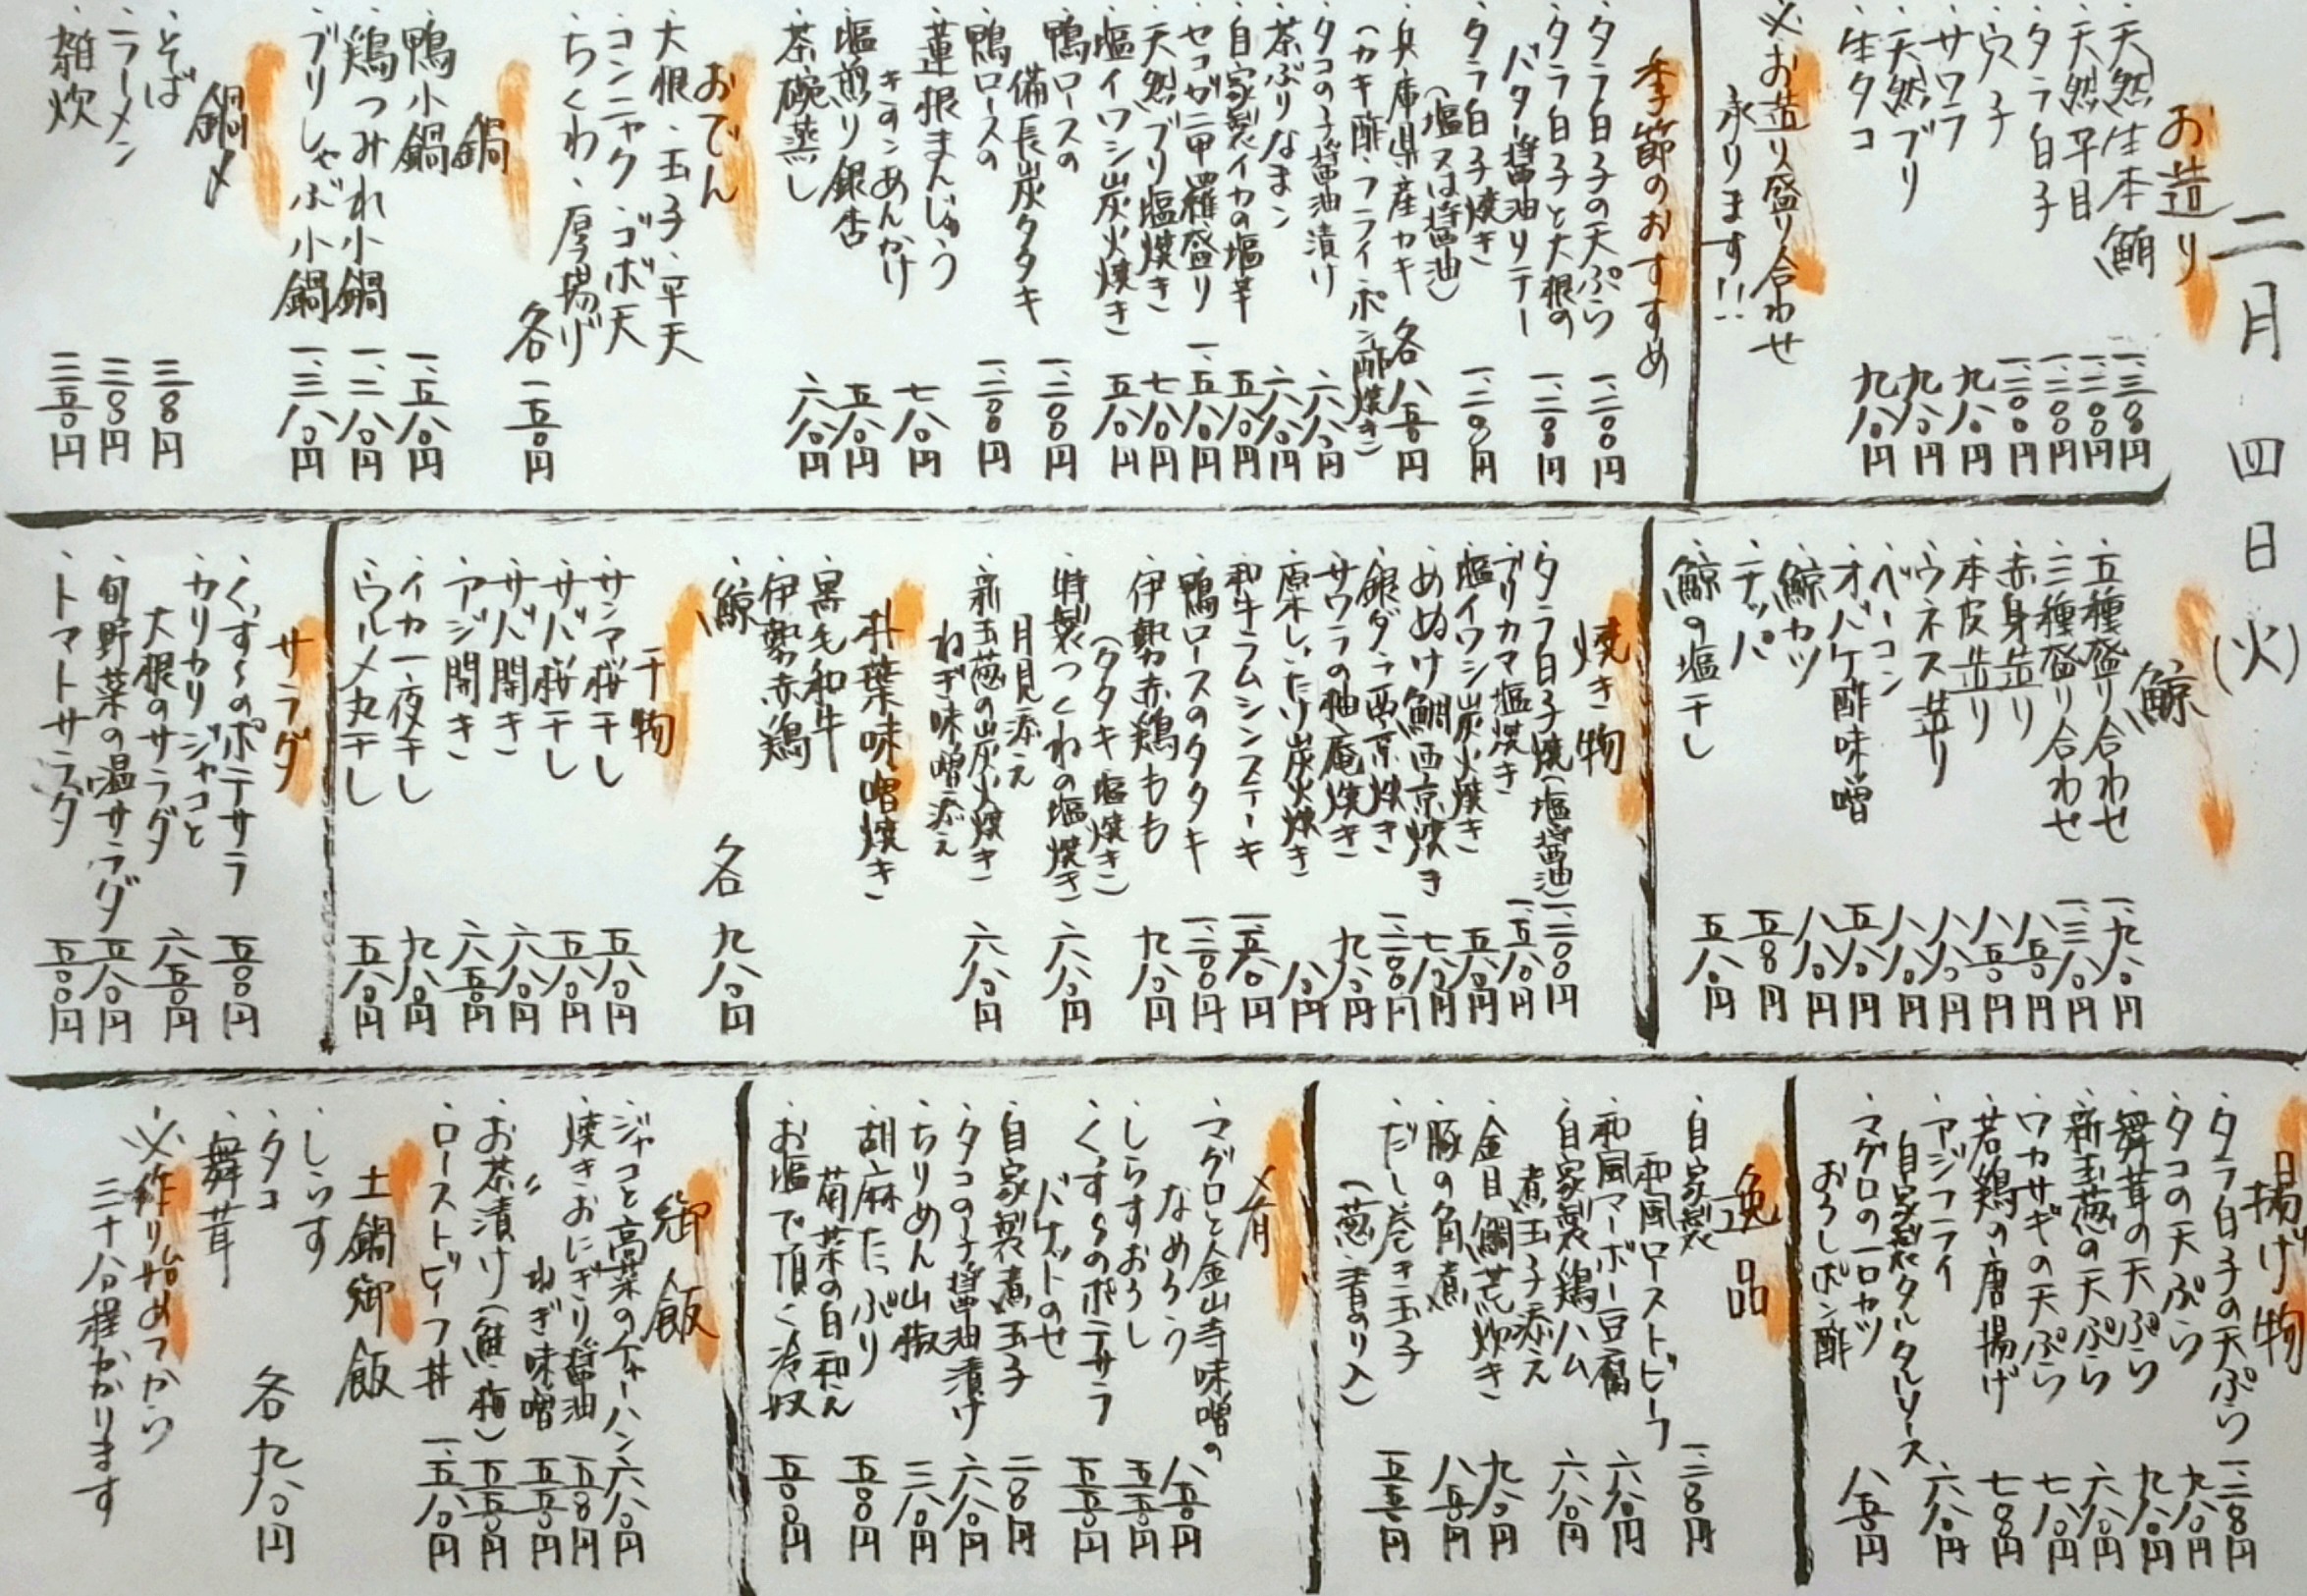 二月四日(火)
お造り
・天然生本鮪 一、三〇〇円
・天然平目 一、二〇〇円
・タラ白子 一、二〇〇円
・穴子 一、二〇〇円
・サワラ 九八〇円
・天然ブリ 九八〇円
・生タコ 九八〇円
※お造り盛り合わせ
承ります!!
季節のおすすめ
・タラ白子の天ぷら 一、二〇〇円
・タラ白子と大根の
バター醤油ソテー 一、二〇〇円
・タラ白子焼き
(塩又は醤油) 一、二〇〇円
・兵庫県産カキ 各八五〇円
(カキ酢・フライ・ポン酢焼き)
・タコの子醤油漬け 六八〇円
・茶ぶりなまこ 六八〇円
・自家製イカの塩辛 五八〇円
・セコガニ甲羅盛り 一、五八〇円
・天然ブリ塩焼き 七八〇円
・塩イワシ炭火焼き 五八〇円
・鴨ロースの
備長炭タタキ 一、二〇〇円
・鴨ロースの 一、二〇〇円
・蓮根まんじゅう
きのこあんかけ 七八〇円
・塩煎り銀杏 五八〇円
・茶碗蒸し 六八〇円
おでん
・大根・玉子・平天
・コンニャク・ゴボ天
・ちくわ・厚揚げ
各一五〇円
鍋
・鴨小鍋 一、五八〇円
・鶏つみれ小鍋 一、二八〇円
・ブリしゃぶ小鍋 一、三八〇円
鍋〆
・そば 三〇〇円
・ラーメン 三〇〇円
・雑炊 三五〇円
鯨
・五種盛り合わせ 一、九八〇円
・三種盛り合わせ 一、三八〇円
・赤身造り 八五〇円
・本皮造り 八五〇円
・ウネス造り 八八〇円
・ベーコン 八八〇円
・オバケ酢味噌 五八〇円
・鯨カツ 八八〇円
・テッパ 五〇〇円
・鯨の塩干し 五八〇円
焼き物
・タラ白子焼(塩・醤油) 一、二〇〇円
・ブリカマ塩焼き 一、五八〇円
・塩イワシ炭火焼き 五八〇円
・めぬけ鯛西京焼き 七八〇円
・銀ダラ西京焼き 一、二〇〇円
・サワラの柚庵焼き 九八〇円
・原木しいたけ炭火焼き 八八〇円
・和牛ラムシンステーキ 一、五八〇円
・鴨ロースのタタキ 一、二〇〇円
・伊勢赤鶏もも
(タタキ・塩焼き) 九八〇円
・特製つくねの塩焼き
月見添え 六八〇円
・新玉葱の炭火焼き
ねぎ味噌添え 六八〇円
朴葉味噌焼き
・黒毛和牛
・伊勢赤鶏
・鯨
各九八〇円
干物
・サンマ桜干し 五八〇円
・サバ桜干し 五八〇円
・サバ開き 六八〇円
・アジ開き 六五〇円
・イカ一夜干し 九八〇円
・ウルメ丸干し 五八〇円
サラダ
・くずしのポテサラ 五五〇円
・カリカリジャコと
大根のサラダ 六五〇円
・旬野菜の温サラダ 五八〇円
・トマトサラダ 五五〇円
揚げ物
・タラ白子の天ぷら 一、二〇〇円
・タコの天ぷら 九八〇円
・舞茸の天ぷら 九八〇円
・新玉葱の天ぷら 六八〇円
・ワカサギの天ぷら 七八〇円
・若鶏の唐揚げ 七〇〇円
・アジフライ
自家製タルタルソース 六八〇円
・マグロの一口カツ
おろしポン酢 八五〇円
逸品
・自家製
和風ローストビーフ 一、二〇〇円
・和風マーボー豆腐 六八〇円
・自家製鶏ハム
煮玉子添え 六八〇円
・金目鯛荒炊き 九八〇円
・豚の角煮 八五〇円
・だし巻き玉子
(葱・青のり入) 五五〇円
〆肴
・マグロと金山寺味噌の
なめろう 八五〇円
・しらすおろし 五五〇円
・くずしのポテサラ
バケットのせ 五五〇円
・自家製煮玉子 二〇〇円
・タコの子醤油漬け 六八〇円
・ちりめん山椒 三八〇円
・胡麻たっぷり
菊菜の白和え 五五〇円
・お塩で頂く冷奴 五五〇円
御飯
・ジャコと高菜のチャーハン 六八〇円
・焼きおにぎり醤油 五五〇円
・〃 ねぎ味噌 五五〇円
・お茶漬け(鮭・梅) 五五〇円
・ローストビーフ丼 一、五八〇円
土鍋御飯
・しらす
・タコ
・舞茸
各九八〇円
※作り始めてから
三十分程かかります